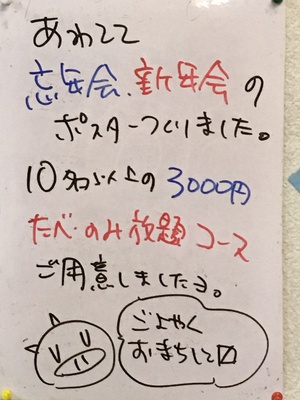 あわてて
忘年会、新年会の
ポスターつくりました。
10名以上の3000円
たべ・のみ放題コース
ご用意しましたヨ。
ごよやく
おまちして〼